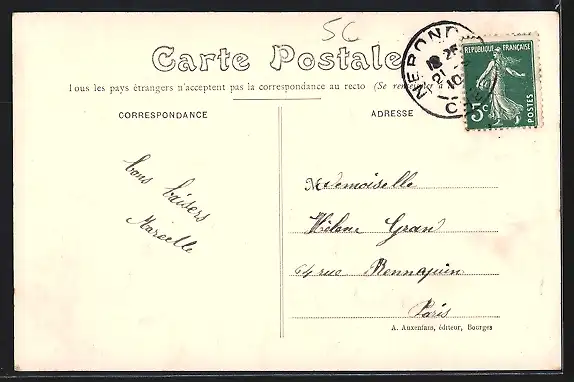 5C
Carte Postale
Tous les pays étrangers n'acceptent pas la correspondance au recto (Se renseigner à
NÉRONDES
18 25
21
10
CHER
REPUBLIQUE FRANÇAISE
5c
POSTES
CORRESPONDANCE
bons baisers
Marcelle
ADRESSE
Mademoiselle
Hélène Gran
rue
Paris
A. Auxenfans, éditeur, Bourges